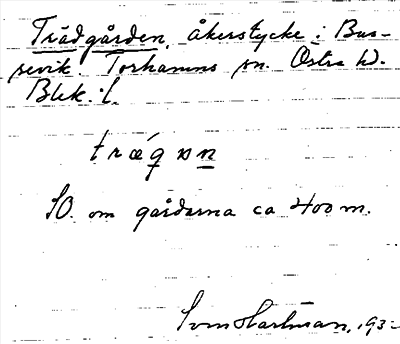 Trädgården, åkerstycke i Bus-
sevik. Torhamns sn. Östra hd.
Blek. l.
SO. om gårdarna ca 400 m.
Sven Hartman, 193